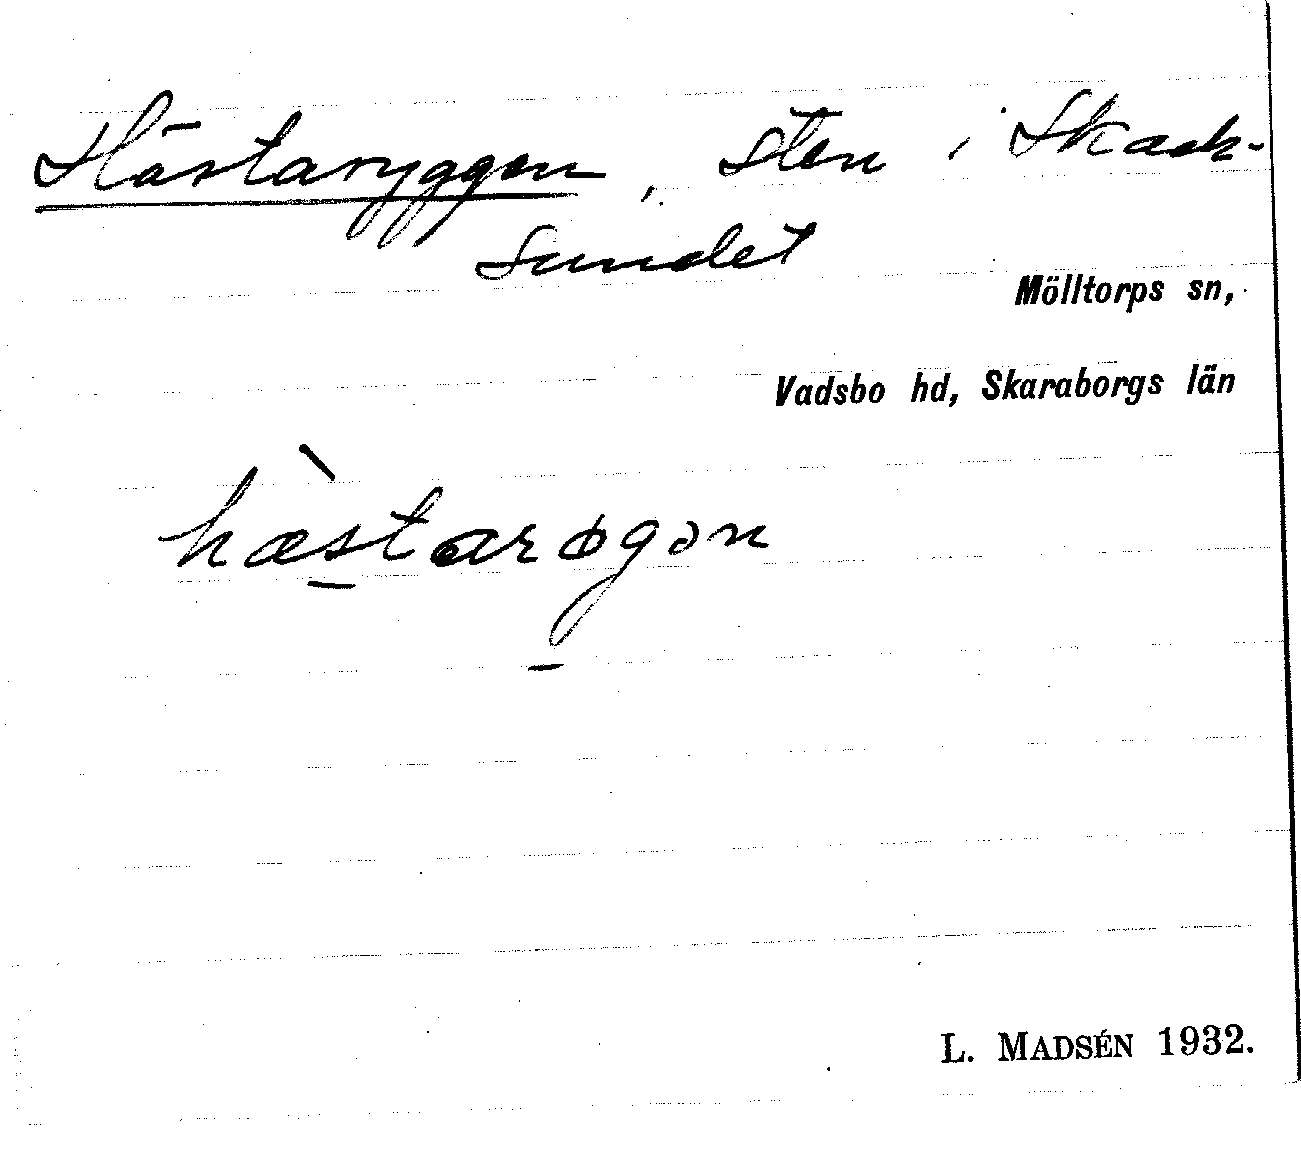 Hästaryggen, sten i Skack-
sundet
Mölltorps sn,
Vadsbo hd, Skaraborgs län
hæ̀starøgən
L. MADSÉN 1932.